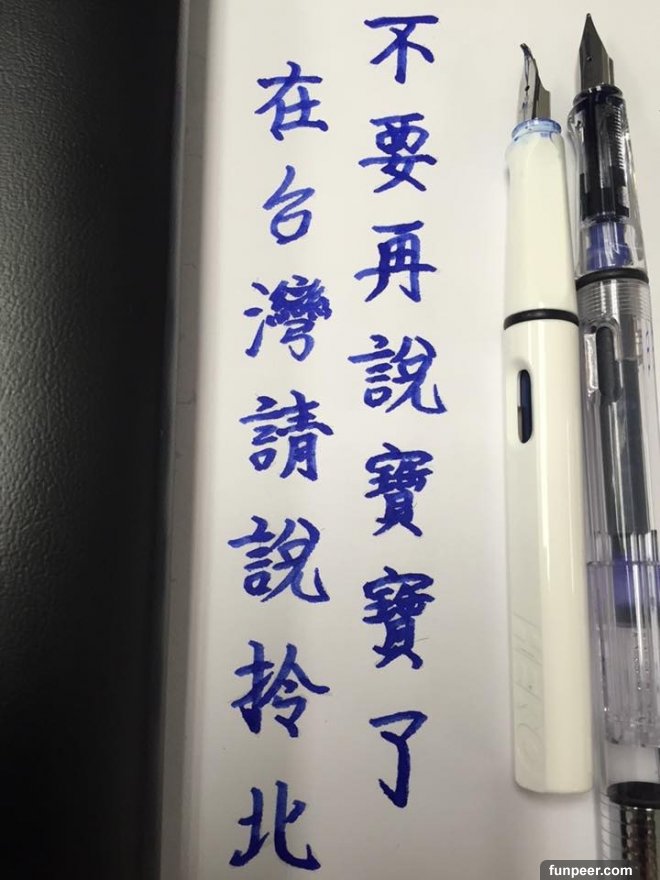 不要再說寶寶了
在台灣請說拎北
HERO
funpeer.com